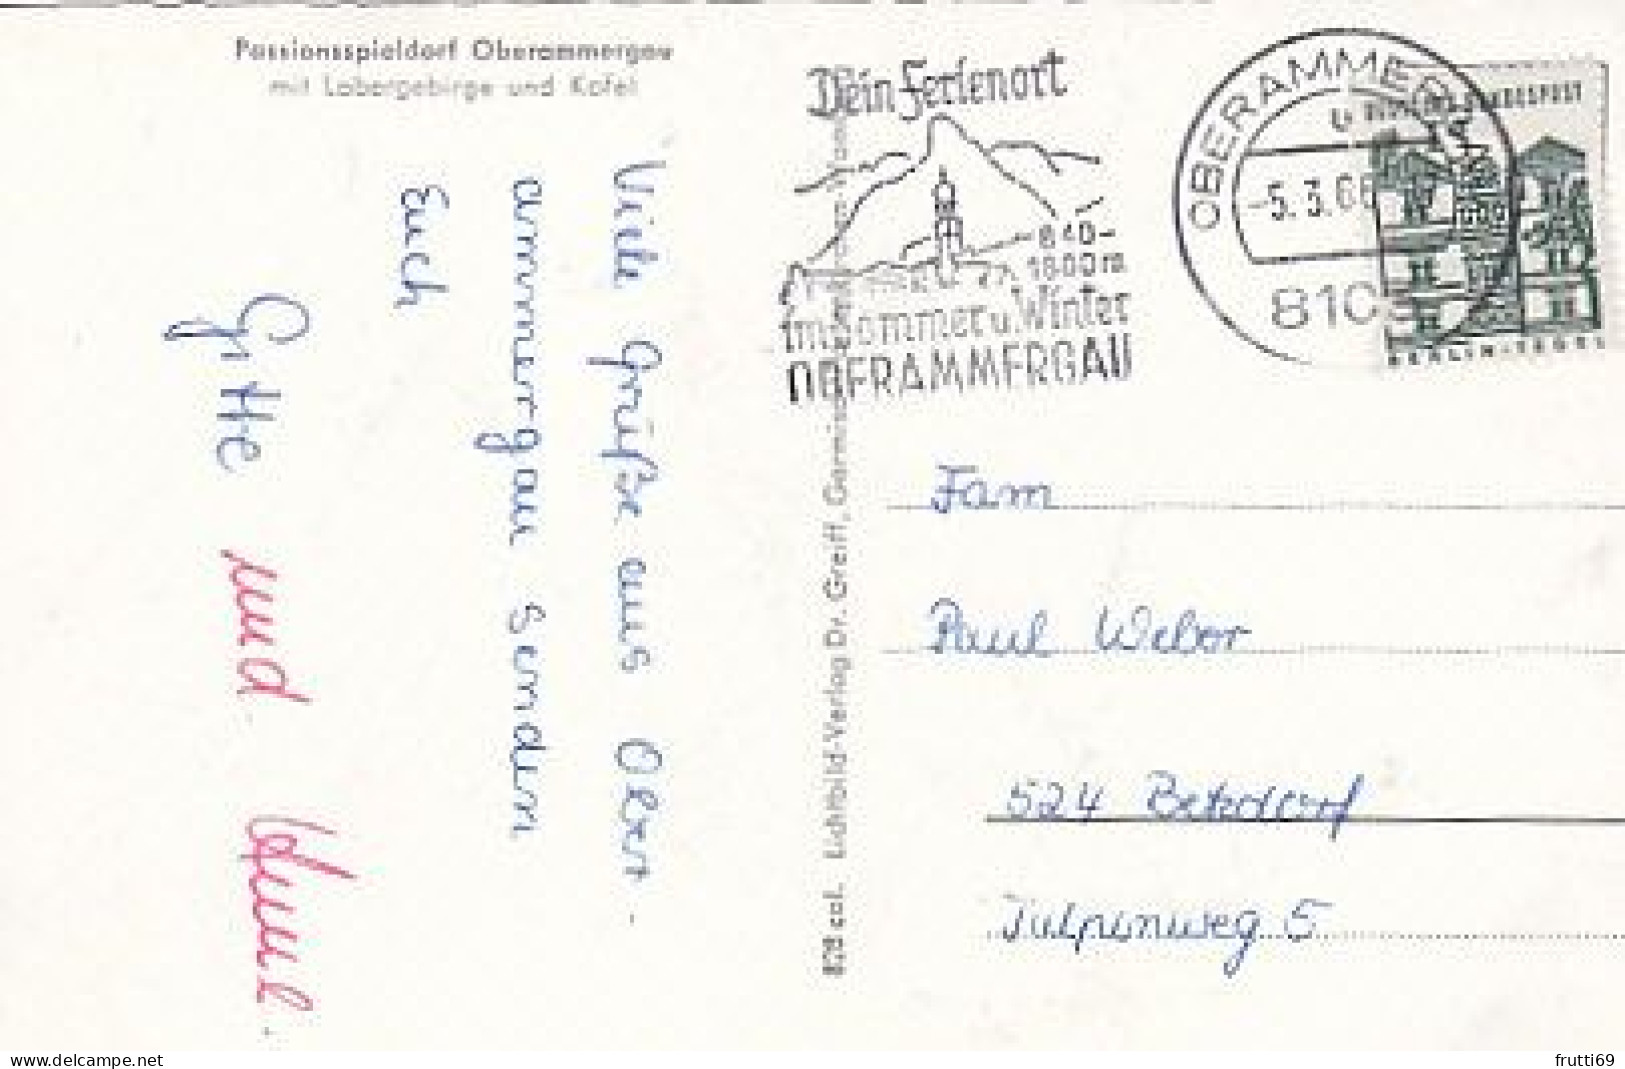 Passionsspieldorf Oberammergau
mit Labergebirge und Kofel
Viele Grüße aus Ober-
ammergau senden
Euch
Gitte und
Dein Ferienort
840-
1800 m
im Sommer u. Winter
OBERAMMERGAU
OBERAMMERGAU
-5. 3. 66
8103
DEUTSCHE BUNDESPOST
BERLIN-TEGEL
808 col. Lichtbild-Verlag Dr. Greiff, Garmisch
Fam
Paul Weber
524 Betzdorf
Tulpenweg 5
www.delcampe.net
frutti69